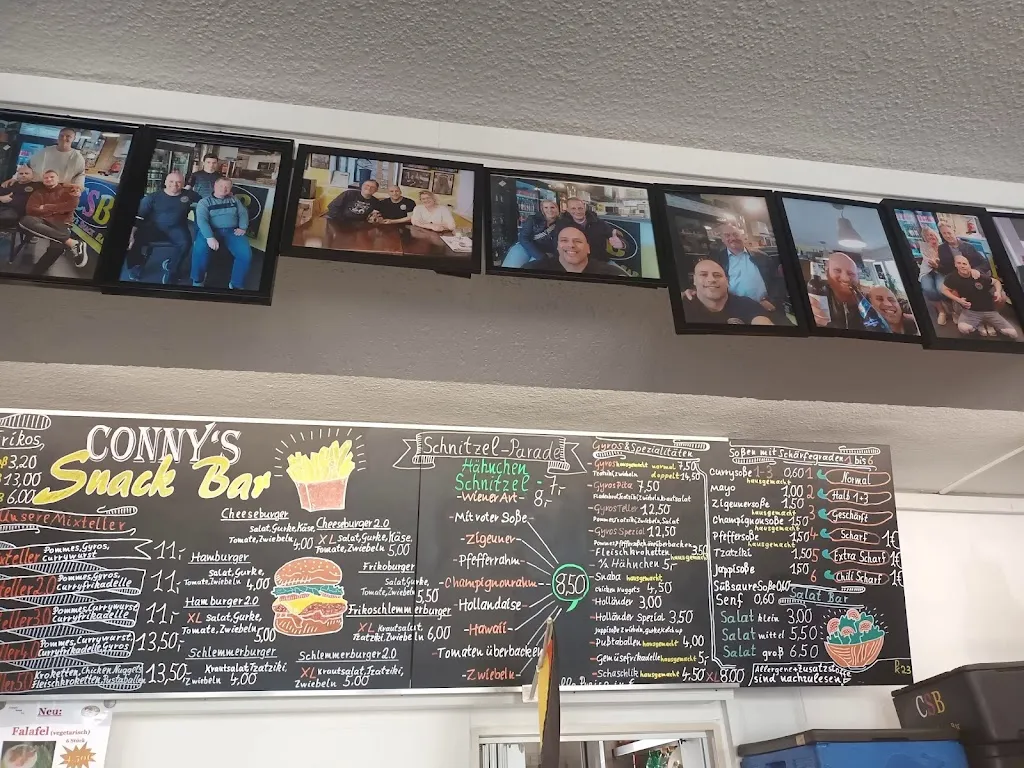 CSB
Frikos,
3,20
13,00
6,00
CONNY'S
Snack Bar
Unsere Mixteller
Pommes, Gyros,
Currywurst
11,-
Pommes, Gyros,
Curryfrikadelle
11,-
Pommes Currywurst
Curryfrikadelle
11,-
Pommes, Currywurst
Curryfrikadelle, Gyros
13,50,-
Kroketten, Chicken Nuggets
Fleischkroketten, Pustaballen
13,50,-
Cheeseburger
Salat, Gurke, Käse,
Tomate, Zwiebeln 4,00
Cheeseburger 2.0
XL Salat, Gurke, Käse,
Tomate, Zwiebeln 5,00
Hamburger
Salat, Gurke,
Tomate, Zwiebeln 4,00
Frikoburger
Salat, Gurke,
Tomate, Zwiebeln 5,50
Hamburger 2.0
XL Salat, Gurke,
Tomate, Zwiebeln 5,00
Frikoschlemmerburger
XL Krautsalat,
Tzatziki, Zwiebeln 6,00
Schlemmerburger
Krautsalat, Tzatziki,
Zwiebeln 4,00
Schlemmerburger 2.0
XL Krautsalat, Tzatziki,
Zwiebeln 5,00
Schnitzel-Parade
Hähnchen
Schnitzel - 7,-
- Wiener Art - 8,-
- Mit roter Soße -
- Zigeuner -
- Pfefferrahm -
- Champignonrahm -
- Hollandaise -
- Hawaii -
- Tomaten überbacken
- Zwiebeln -
8,50
Gyros & Spezialitäten
- Gyros hausgemacht normal 7,50
Tzatziki, Zwiebeln doppelt 14,50
- Gyros Pita 7,50
- Gyros Teller 12,50
Pommes, Tzatziki, Zwiebeln, Salat
- Gyros Spezial 12,50
- Fleischkroketten hausgemacht 3,50
- ½ Hähnchen 5,-
Chicken Nuggets 4,50
- Holländer 3,00
- Holländer Spezial 3,50
- Pußtaballen hausgemacht 4,00
- Gemüsefrikadelle hausgemacht 5,-
- Schaschlik hausgemacht 4,50 XL 8,00
Soßen mit Schärfegraden 1 bis 6
Currysoße 1-3 0,60
hausgemacht
Mayo 1,00
Zigeunersoße 1,50
hausgemacht
Champignonsoße 1,50
hausgemacht
Pfeffersoße 1,50
hausgemacht
Tzatziki 1,50
Jappisoße 1,50
Süßsaure Soße 0,60
Senf 0,60
1 Normal
2 Halb 1+3
3 Geschärft
4 Scharf 1€
5 Extra Scharf 1€
6 Chili Scharf 1€
Salat Bar
Salat klein 3,00
Salat mittel 5,50
Salat groß 6,50
Allergene + Zusatzstoffe
sind nachzulesen!
R23
CSB
Neu:
Falafel (vegetarisch)
6 Stück